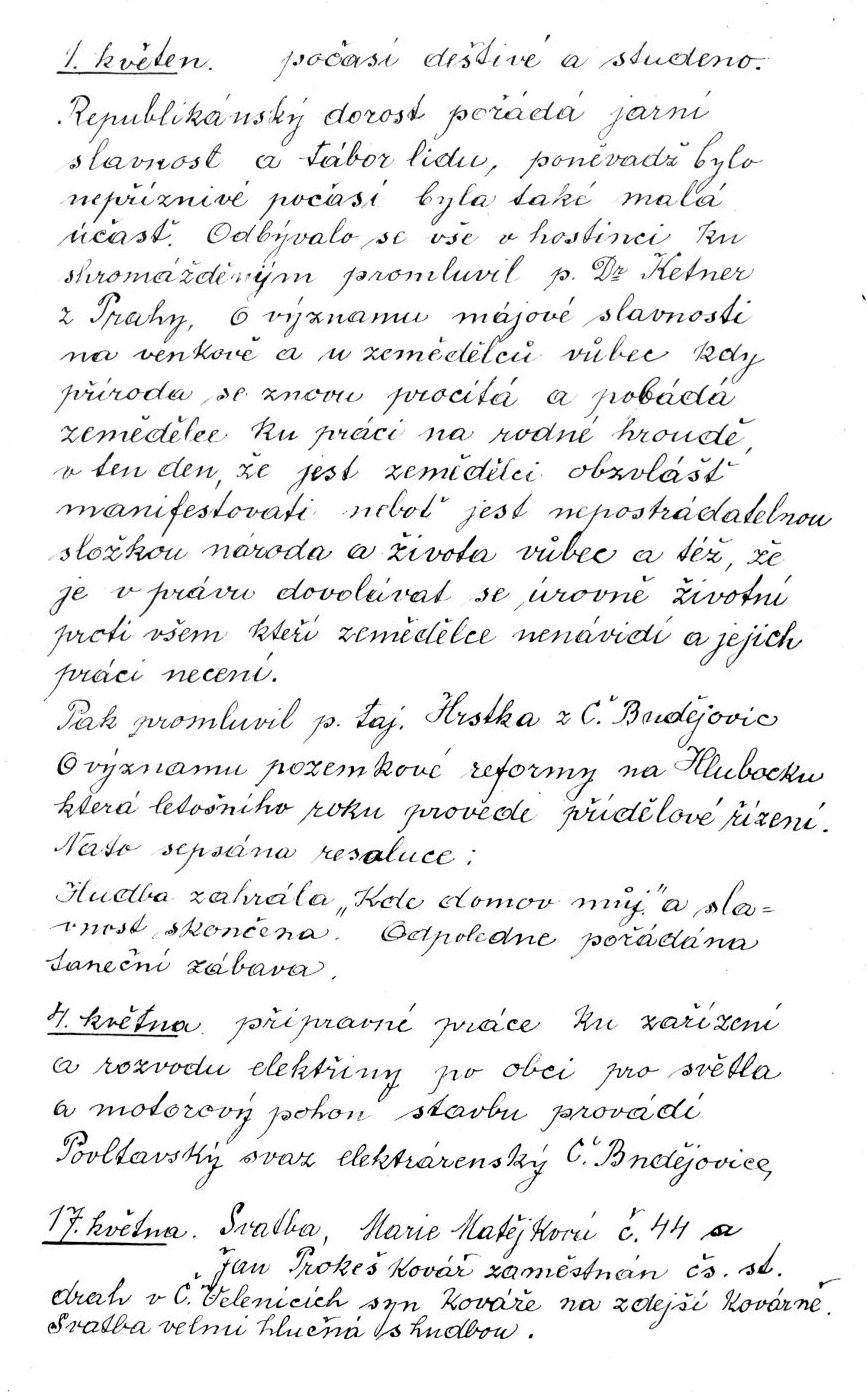 1. květen. počasí deštivé a studeno.
Republikánský dorost pořádá jarní
slavnost a tábor lidu, poněvadž bylo
nepříznivé počasí byla také malá
účasť. Odbývalo se vše v hostinci ku
shromážděným promluvil p. Dr Ketner
z Prahy, O významu májové slavnosti
na venkově a u zemědělců vůbec kdy
příroda se znovu procitá a pobádá
zemědělce ku práci na rodné hroudě,
v ten den, že jest zemědělci obzvlášť
manifestovati neboť jest nepostrádatelnou
složkou národa a života vůbec a též, že
je v právu dovolávat se úrovně životní
proti všem kteří zemědělce nenávidí a jejich
práci necení.
Pak promluvil p. taj. Hrstka z Č. Budějovic
O významu pozemkové reformy na Hlubocku
která letošního roku provede přídělové řízení.
Nato sepsána resoluce;
Hudba zahrála „Kde domov můj" a sla=
vnost skončena. Odpoledne pořádána
taneční zábava.
4. května. přípravné práce ku zařízení
a rozvodu elektřiny po obci pro světla
a motorový pohon stavbu provádí
Povltavský svaz elektrárenský Č. Budějovice,
17. května. Svatba, Marie Matějkovú č. 44 a
Jan Prokeš Kovář zaměstnán čs. st.
drah v Č. Velenicích syn Kováře na zdejší Kovárně.
Svatba velmi hlučná s hudbou.